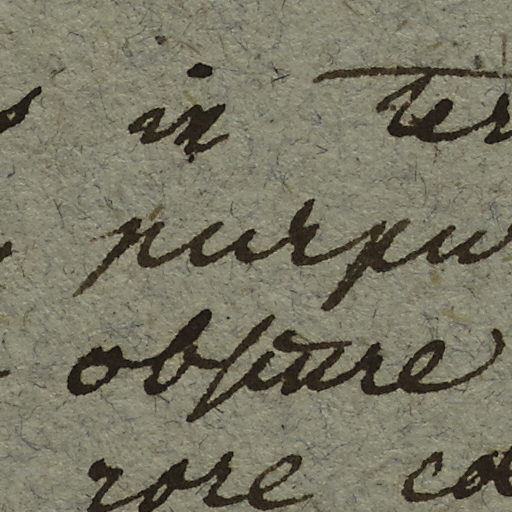 in ter
purpu
obscure
rore co